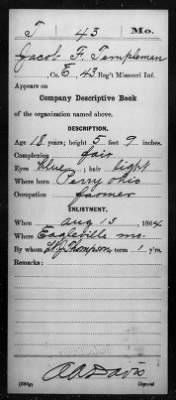 T 43 Mo.
Jacob F. Templeman
, Co. E, 43 Reg't Missouri Inf.
Appears on
Company Descriptive Book
of the organization named above.
DESCRIPTION.
Age 18 years; height 5 feet 9 inches.
Complexion fair
Eyes blue; hair light
Where born Perry Ohio
Occupation farmer
ENLISTMENT.
When Aug 13, 1864.
Where Eagleville Mo.
By whom Thompson; term 1 y'rs.
Remarks:
Davis
Copyist.